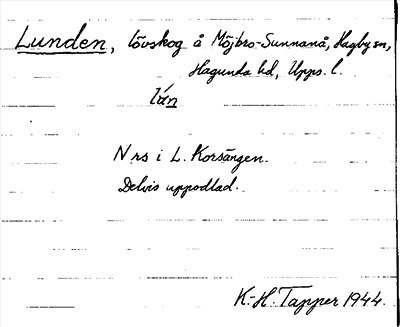 Lunden, lövskog å Möjbro-Sunnanå, Hagby sn,
Hagunda hd, Upps. l.
N rs i L. Korsängen.
Delvis uppodlad.
K.-H. Tapper 1944.